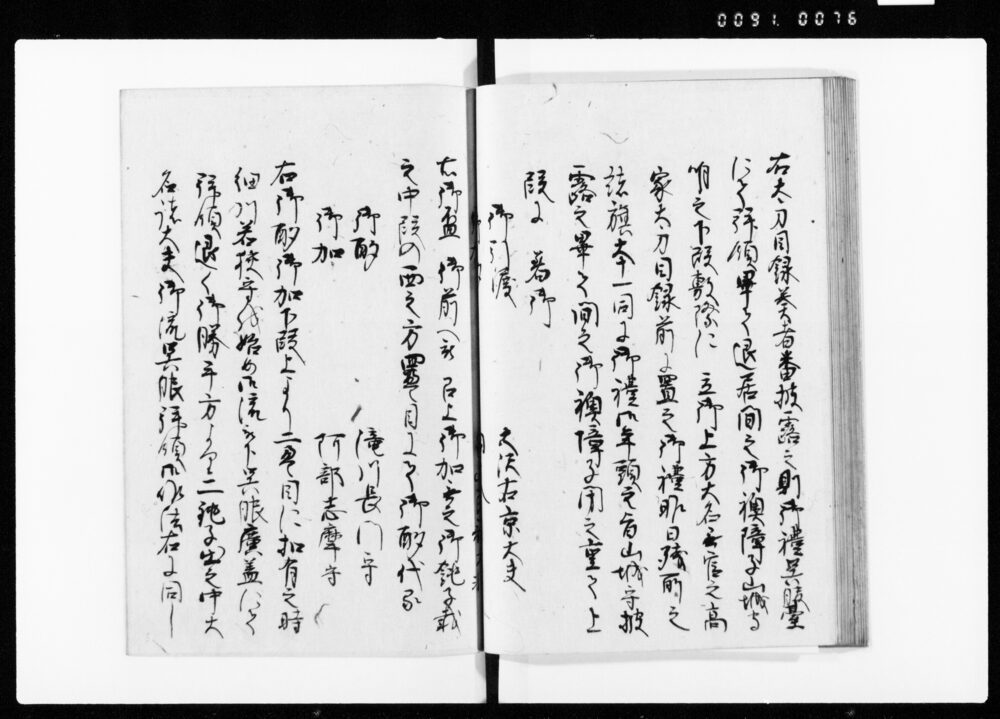 0091.0076
右太刀目録奏者番披露之則御禮呉服臺
にて拝領畢て退居間之御襖障子山城守
明之下段敷際に 立御上方大名無官之高
家太刀目録前に置之御禮昨日残所之
諸旗本一同に御禮御年頭之旨山城守披
露之畢て間之御襖障子閉之重て上
段に 着御
御引渡
大沢右京大夫
右御盃 御前へ 召上御加有之御銚子載
之中段の西之方置目にて御酌代る
御酌
滝川長門守
御加
阿部志摩守
右御酌御加下段上より二畳目に扣有之時
細川若狭守始め御流被下呉服廣蓋にて
拝領退く御勝手方より二銚子出之中大
名諸大夫御流呉服拝領御作法右に同し